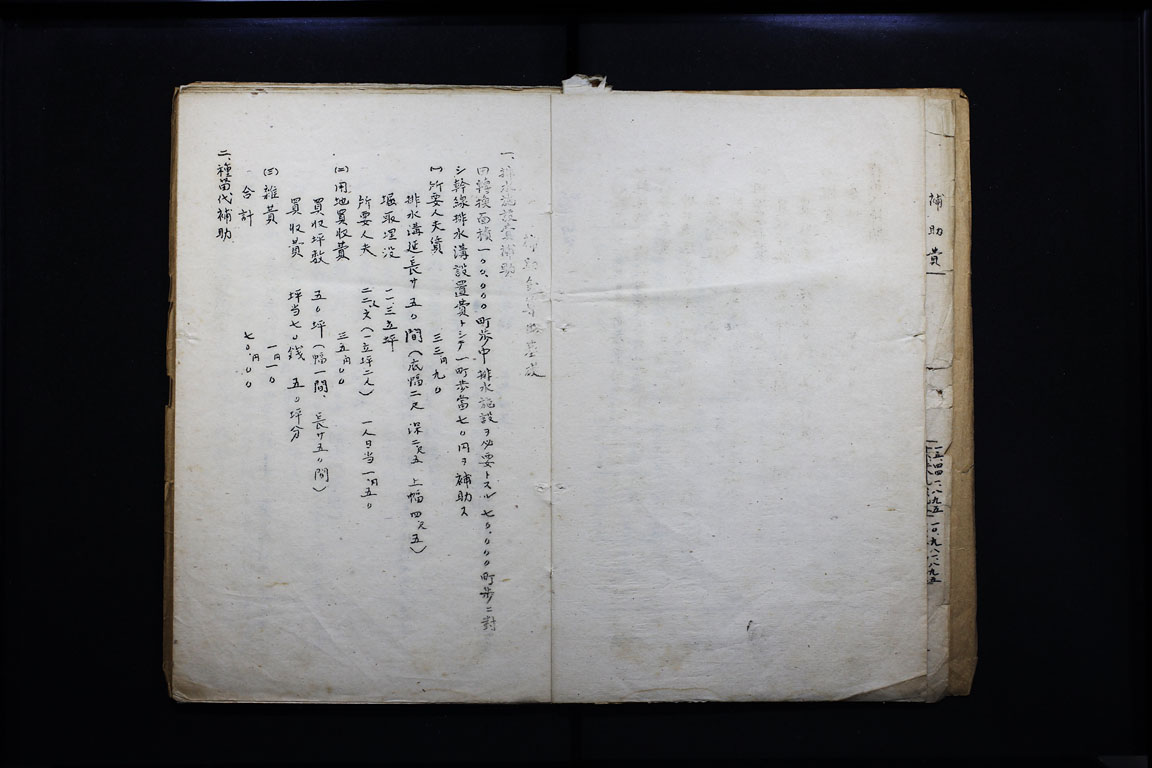 補助費
一五、四四一、八九五
一〇、九八一、八九五
補助金
一、排水施設費補助
田轉換面積一〇〇、〇〇〇町歩中排水施設ヲ必要トスル七〇、〇〇〇町歩ニ對
シ幹線排水溝設置費トシテ一町歩當七〇円ヲ補助ス
(一)所要人夫賃 三三円九〇
排水溝延長サ 五〇間(底幅二尺 深二尺五 上幅四尺五)
堀取埋没 一一、三立坪
所要人夫 二二、六人(一立坪二人) 一人日当一円五〇
(二)用地買收費 三五円〇〇
買收坪数 五〇坪(幅一間、長サ五〇間)
買收費 坪当七〇銭 五〇坪分
(三)雜費 一円一〇
合計 七〇円〇〇
二、種苗代補助